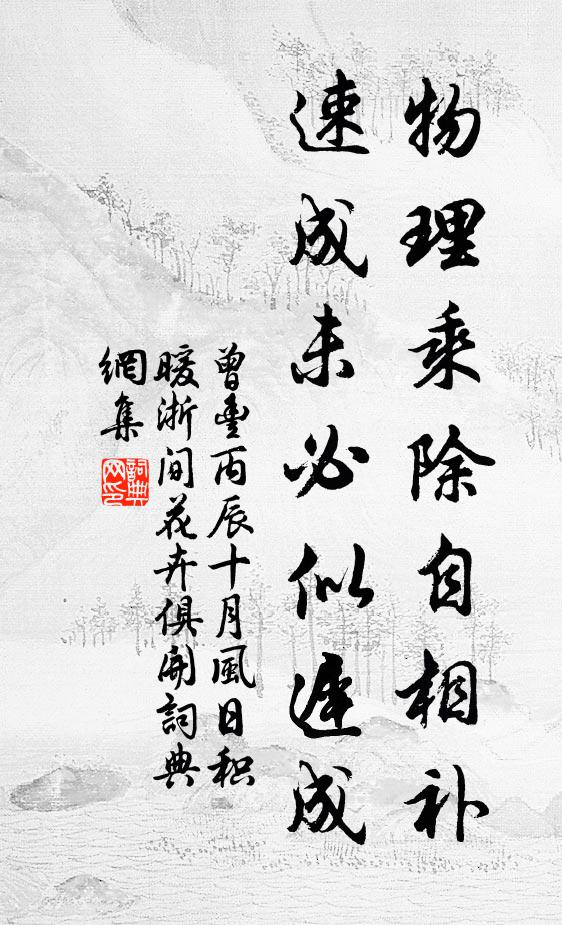 物理乘除自相补
速成未必似遲成
曾豊丙辰十月風日积
暖浙间花卉俱開詞典
網集
詞典
网印